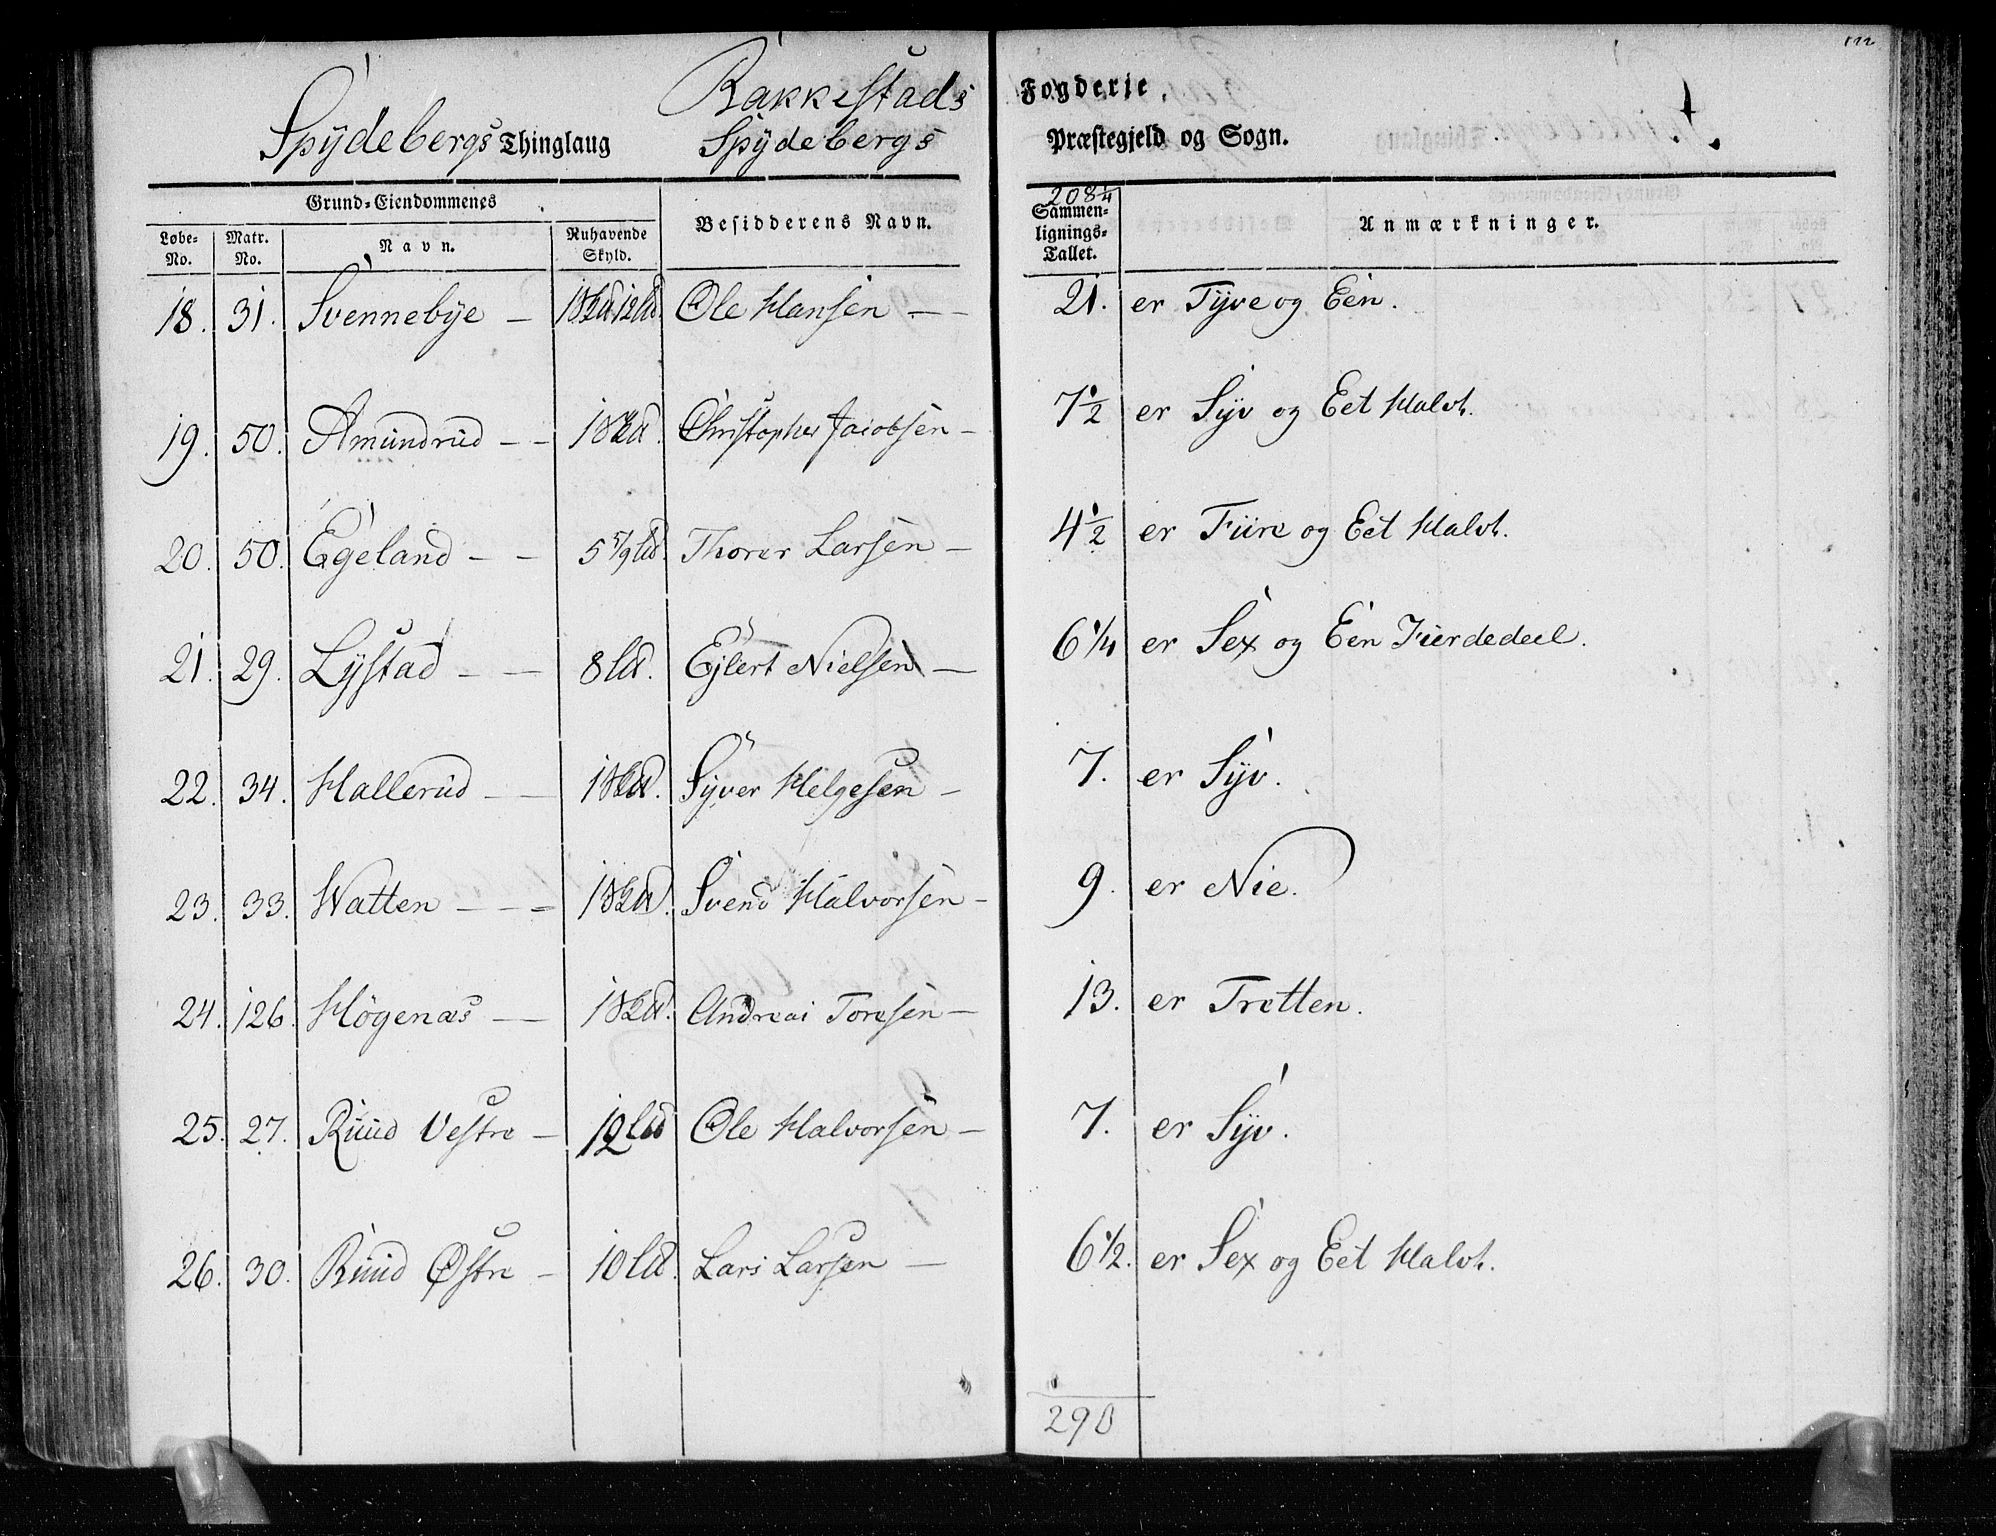 Rakkestads Fogderie.
Spÿdebergs Thinglaug Spÿdebergs Præstegjeld og Sogn.
Grund-Eiendommenes
Løbe-No. Matr. No. Navn. Ruhavende Skyld. Besidderens Navn. 208¼ Sammenlignings-Tallet. Anmærkninger.
18. 31. Svennebÿe — Ole Hansen — — 21. er Tÿve og Een.
19. 50. Amundrud — — Christopher Jacobsen — 7½ er Sÿv og Eet Halvt.
20. 50. Egeland — — 5 5/9 Lid. Thorer Larsen — 4½ er Fiire og Eet Halvt.
21. 29. Lÿstad — — 8 Lid. Ejlert Nielsen — 6¼ er Sex og Een Fierdedeel.
22. 34. Hallerud — — Sÿver Helgesen — 7. er Sÿv.
23. 33. Watten — — = Svend Halvorsen — 9. er Nie.
24. 126. Högenæs — Andreas Toresen — 13. er Tretten.
25. 27. Ruud Vestre — 12 Lid Ole Halvorsen — 7. er Sÿv.
26. 30. Ruud Østre — 10 Lid. Lars Larsen — 6½. er Sex og Eet Halvt.
290